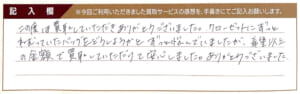 記入欄 ※今回ご利用いただきました買取サービスの感想を、手書きにてご記入お願いします。
この度は買取していただきありがとうございました。クローゼットにずっと
ねむっていたバッグをどうしようかとずっとなやんでいましたが、希望以上
の金額で買取していただけて安心しました。ありがとうございました。